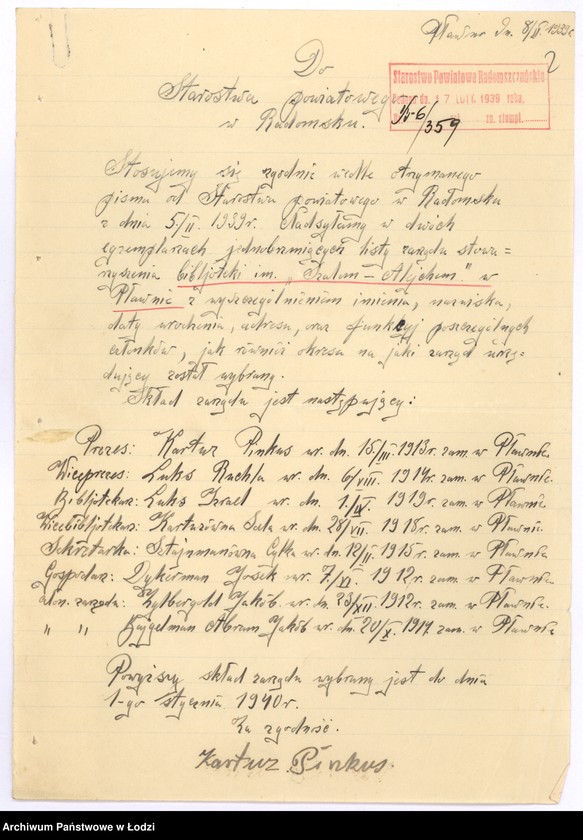 Pławno dn. 8/II. 1939r.
2
Do
Starostwa powiatowego
w Radomsku.
Starostwo Powiatowe Radomszczańskie
17 LUT. 1939 roku.
zn. stempl.
B-6/359
Stosujemy się zgodnie wedle otrzymanego
pisma od Starostwa powiatowego w Radomsku
z dnia 5/II. 1939r. Nadsyłamy w dwóch
egzemplarzach jednobrzmiących listy zarządu stowa=
rzyszenia bibljoteki im. "Szalom-Alejchem" w
Pławnie z wyszczególnieniem imienia, nazwiska,
daty urodzenia, adresu, oraz funkcyj poszczególnych
członków, jak również okresu na jaki zarząd urzę-
dujący został wybrany.
Skład zarządu jest następujący:
Prezes: Kartuz Pinkus ur. dn. 15/III. 1913r. zam. w Pławnie
Wiceprezes: Luks Ruchla ur. dn. 6/VIII. 1914r. zam. w Pławnie.
Bibljotekarz: Luks Izrael ur. dn. 1/IV. 1919r. zam. w Pławnie
Wicebibljotekarz: Kartuzówna Sala ur. dn. 28/VII. 1918r. zam. w Pławnie.
Sekretarka: Sztajnmanówna Cyłka ur. dn. 12/II. 1915r. zam. w Pławnie
Gospodarz: Dykerman Josek ur. 7/VI. 1912r. zam. w Pławnie
człon. zarządu: Zylbergold Jakób ur. dn. 25/XII. 1912r. zam. w Pławnie.
" " Kajzelman Abram Jakób ur. dn. 20/X. 1917. zam. w Pławnie
Powyższy skład zarządu wybrany jest do dnia
1-go stycznia 1940r.
Za zgodność.
Kartuz Pinkus.
Archiwum Państwowe w Łodzi